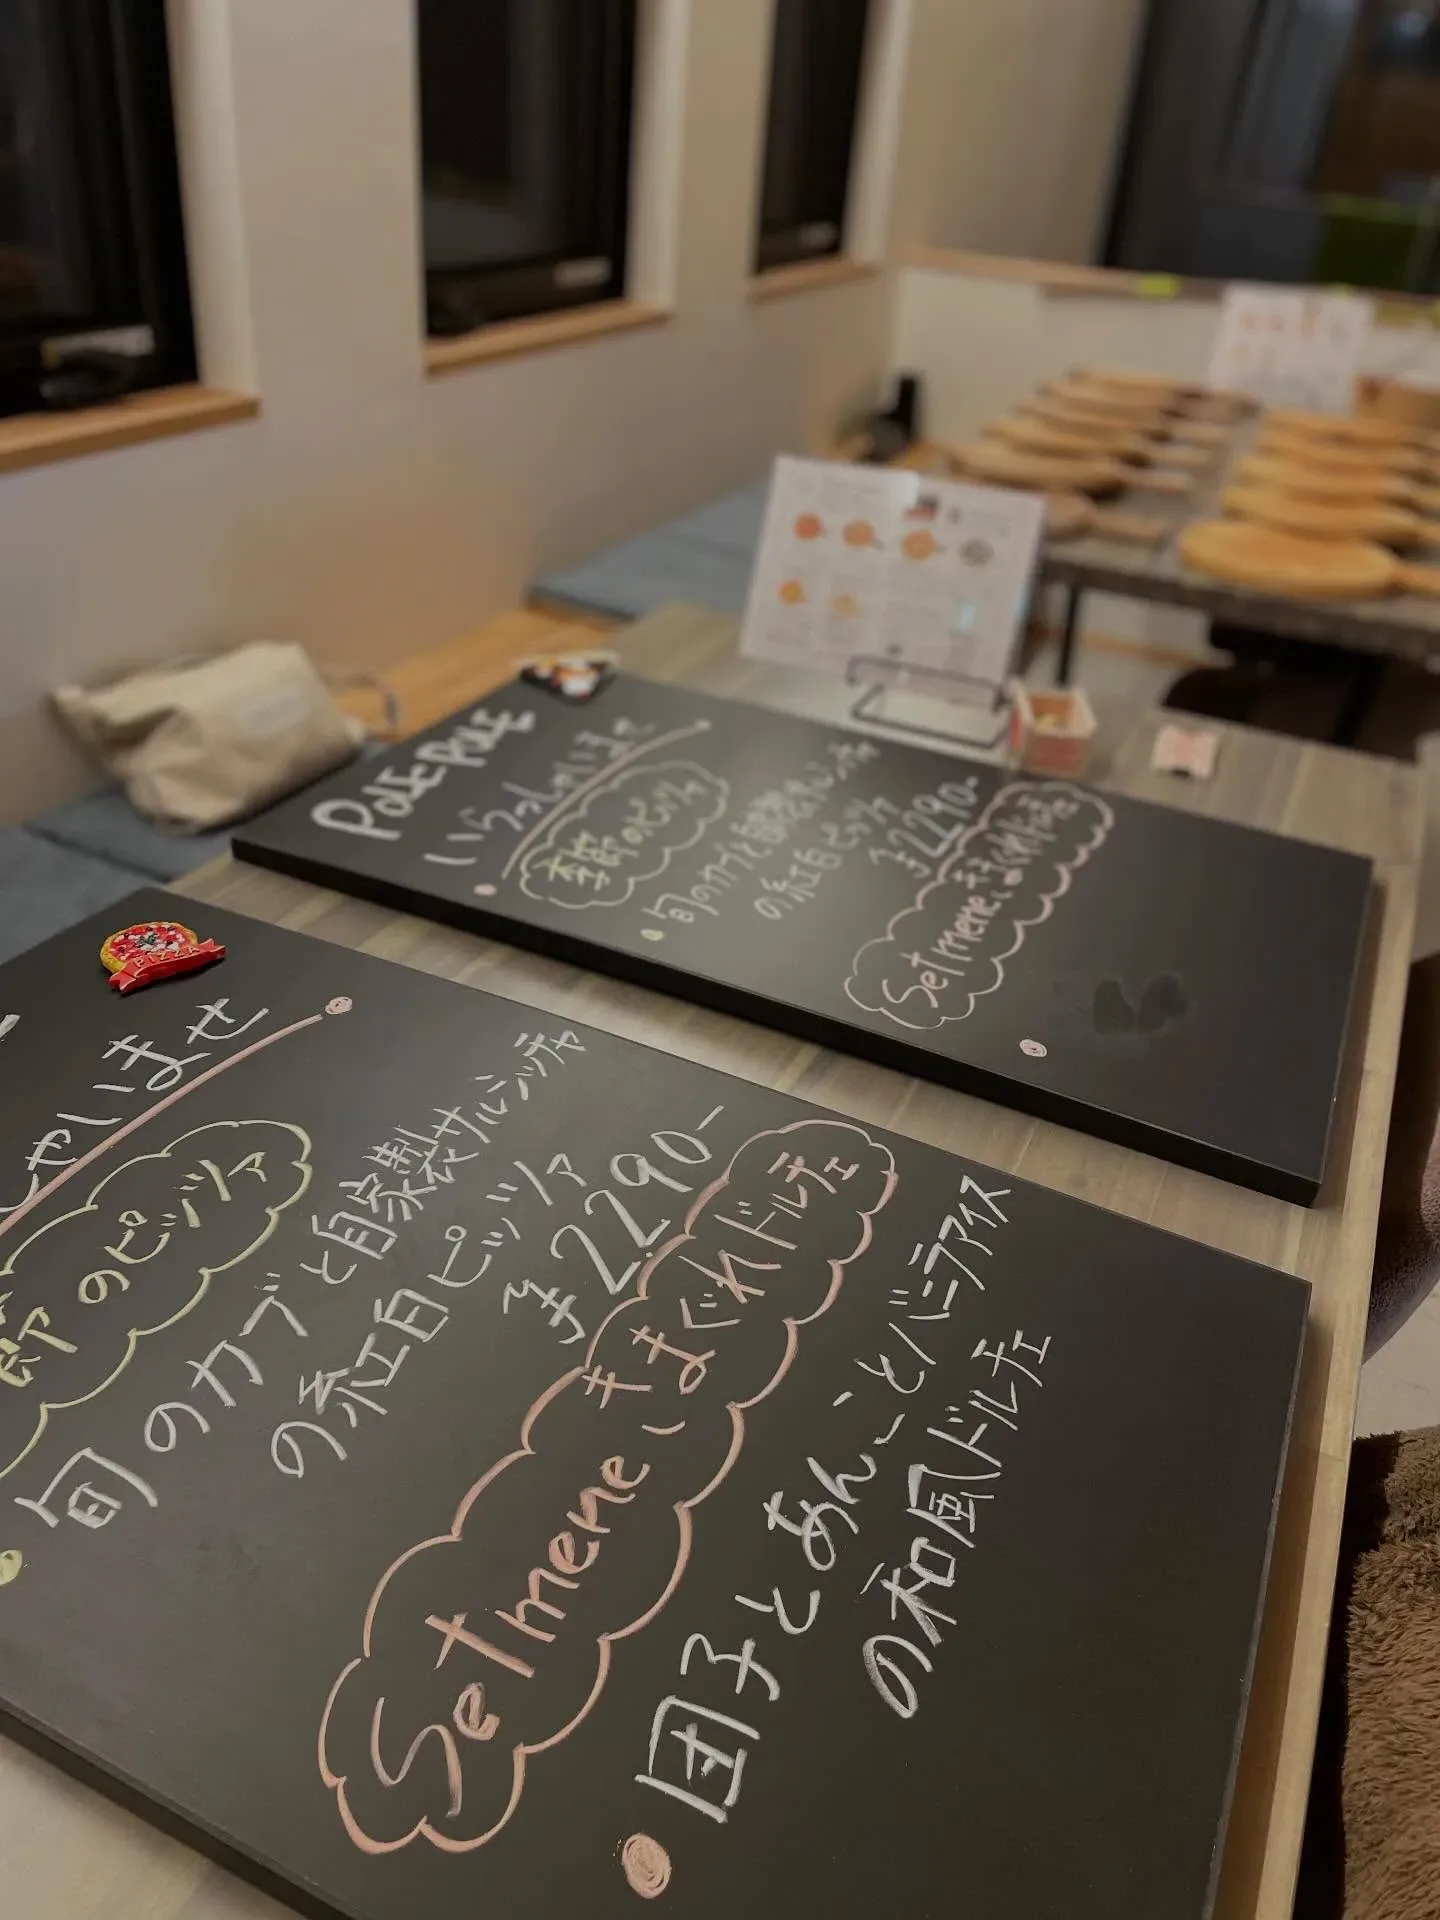 いらっしゃいませ
季節のピッツァ
旬のカブと自家製サルシッチャ
の紅白ピッツァ
¥2,290-
Set mene きまぐれドルチェ
PIZZA
しゃいませ
節のピッツァ
旬のカブと自家製サルシッチャ
の紅白ピッツァ
¥2,290-
Set mene きまぐれドルチェ
団子とあんことバニラアイス
の和風ドルチェ